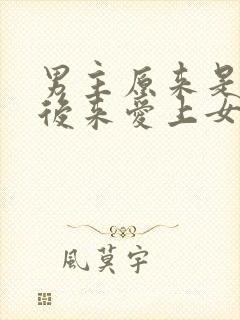 男主原来是
後来愛上女
風莫宇